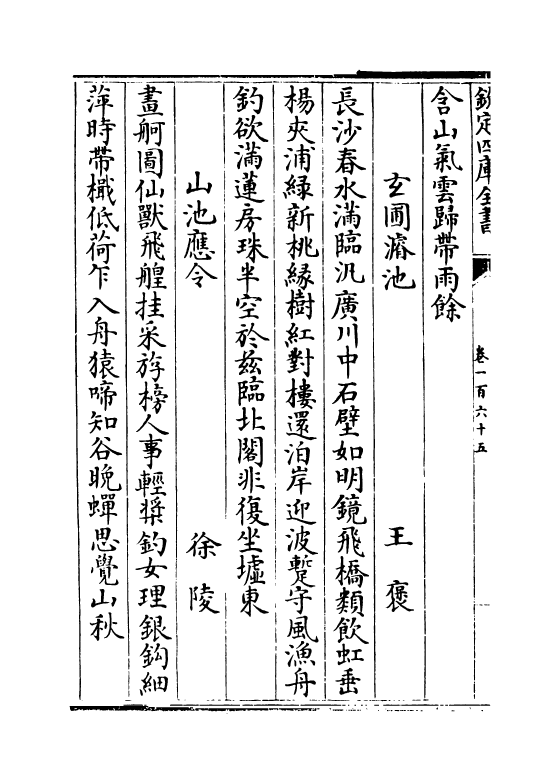 欽定四庫全書
卷一百六十五
含山氣雲歸帶雨餘
玄圃濬池　王褒
長沙春水滿臨汎廣川中石壁如明鏡飛橋類飲虹垂
楊夾浦綠新桃緣樹紅對樓還泊岸迎波蹔守風漁舟
釣欲滿蓮房珠半空於兹臨北閣非復坐墟東
山池應令　徐陵
畫舸圖仙獸飛艎挂采斿榜人事輕槳釣女理銀鈎細
萍時帶檝低荷乍入舟猿啼知谷晚蟬思覺山秋